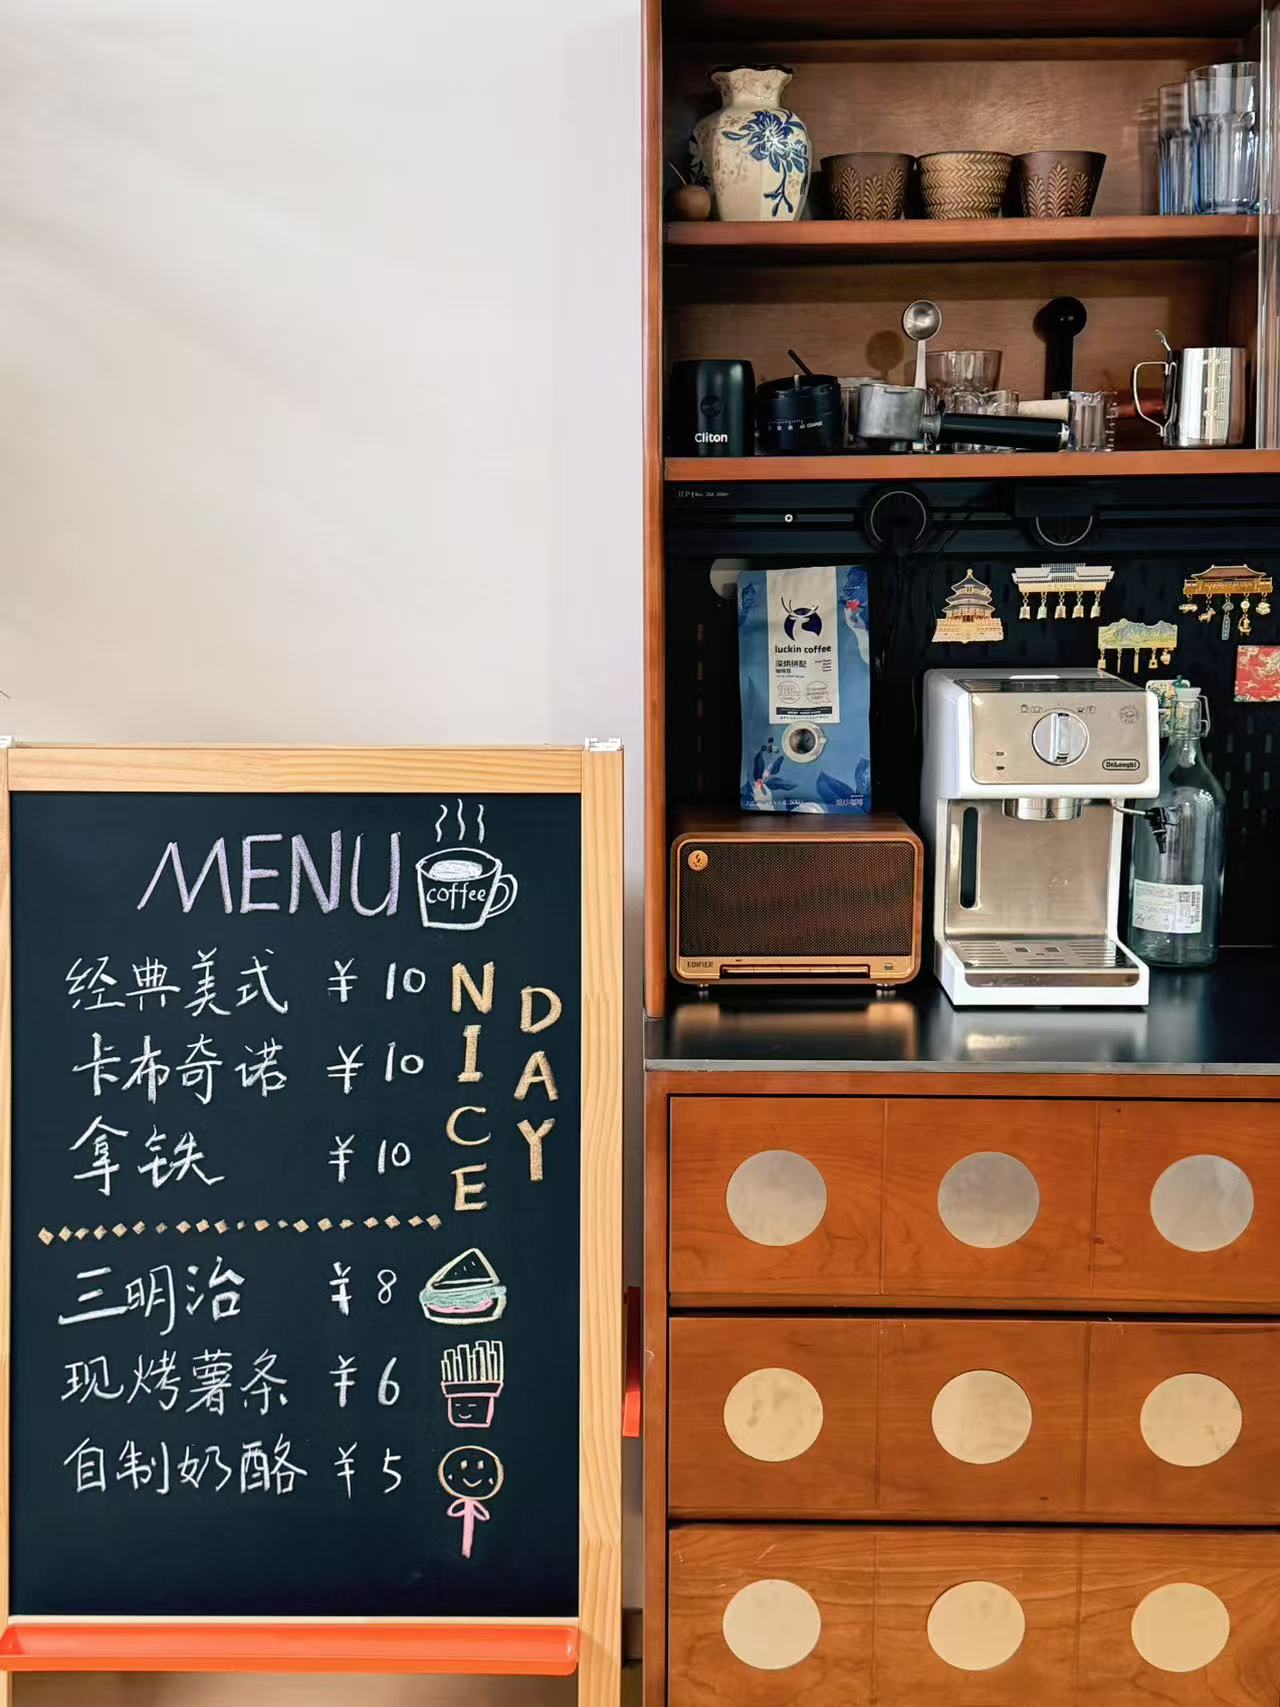 MENU
coffee
经典美式 ¥ 10
卡布奇诺 ¥ 10
拿铁 ¥ 10
NICE
DAY
三明治 ¥ 8
现烤薯条 ¥ 6
自制奶酪 ¥ 5
Cliton
luckin coffee
深烘拼配
咖啡豆
DeLonghi
EDIFIER